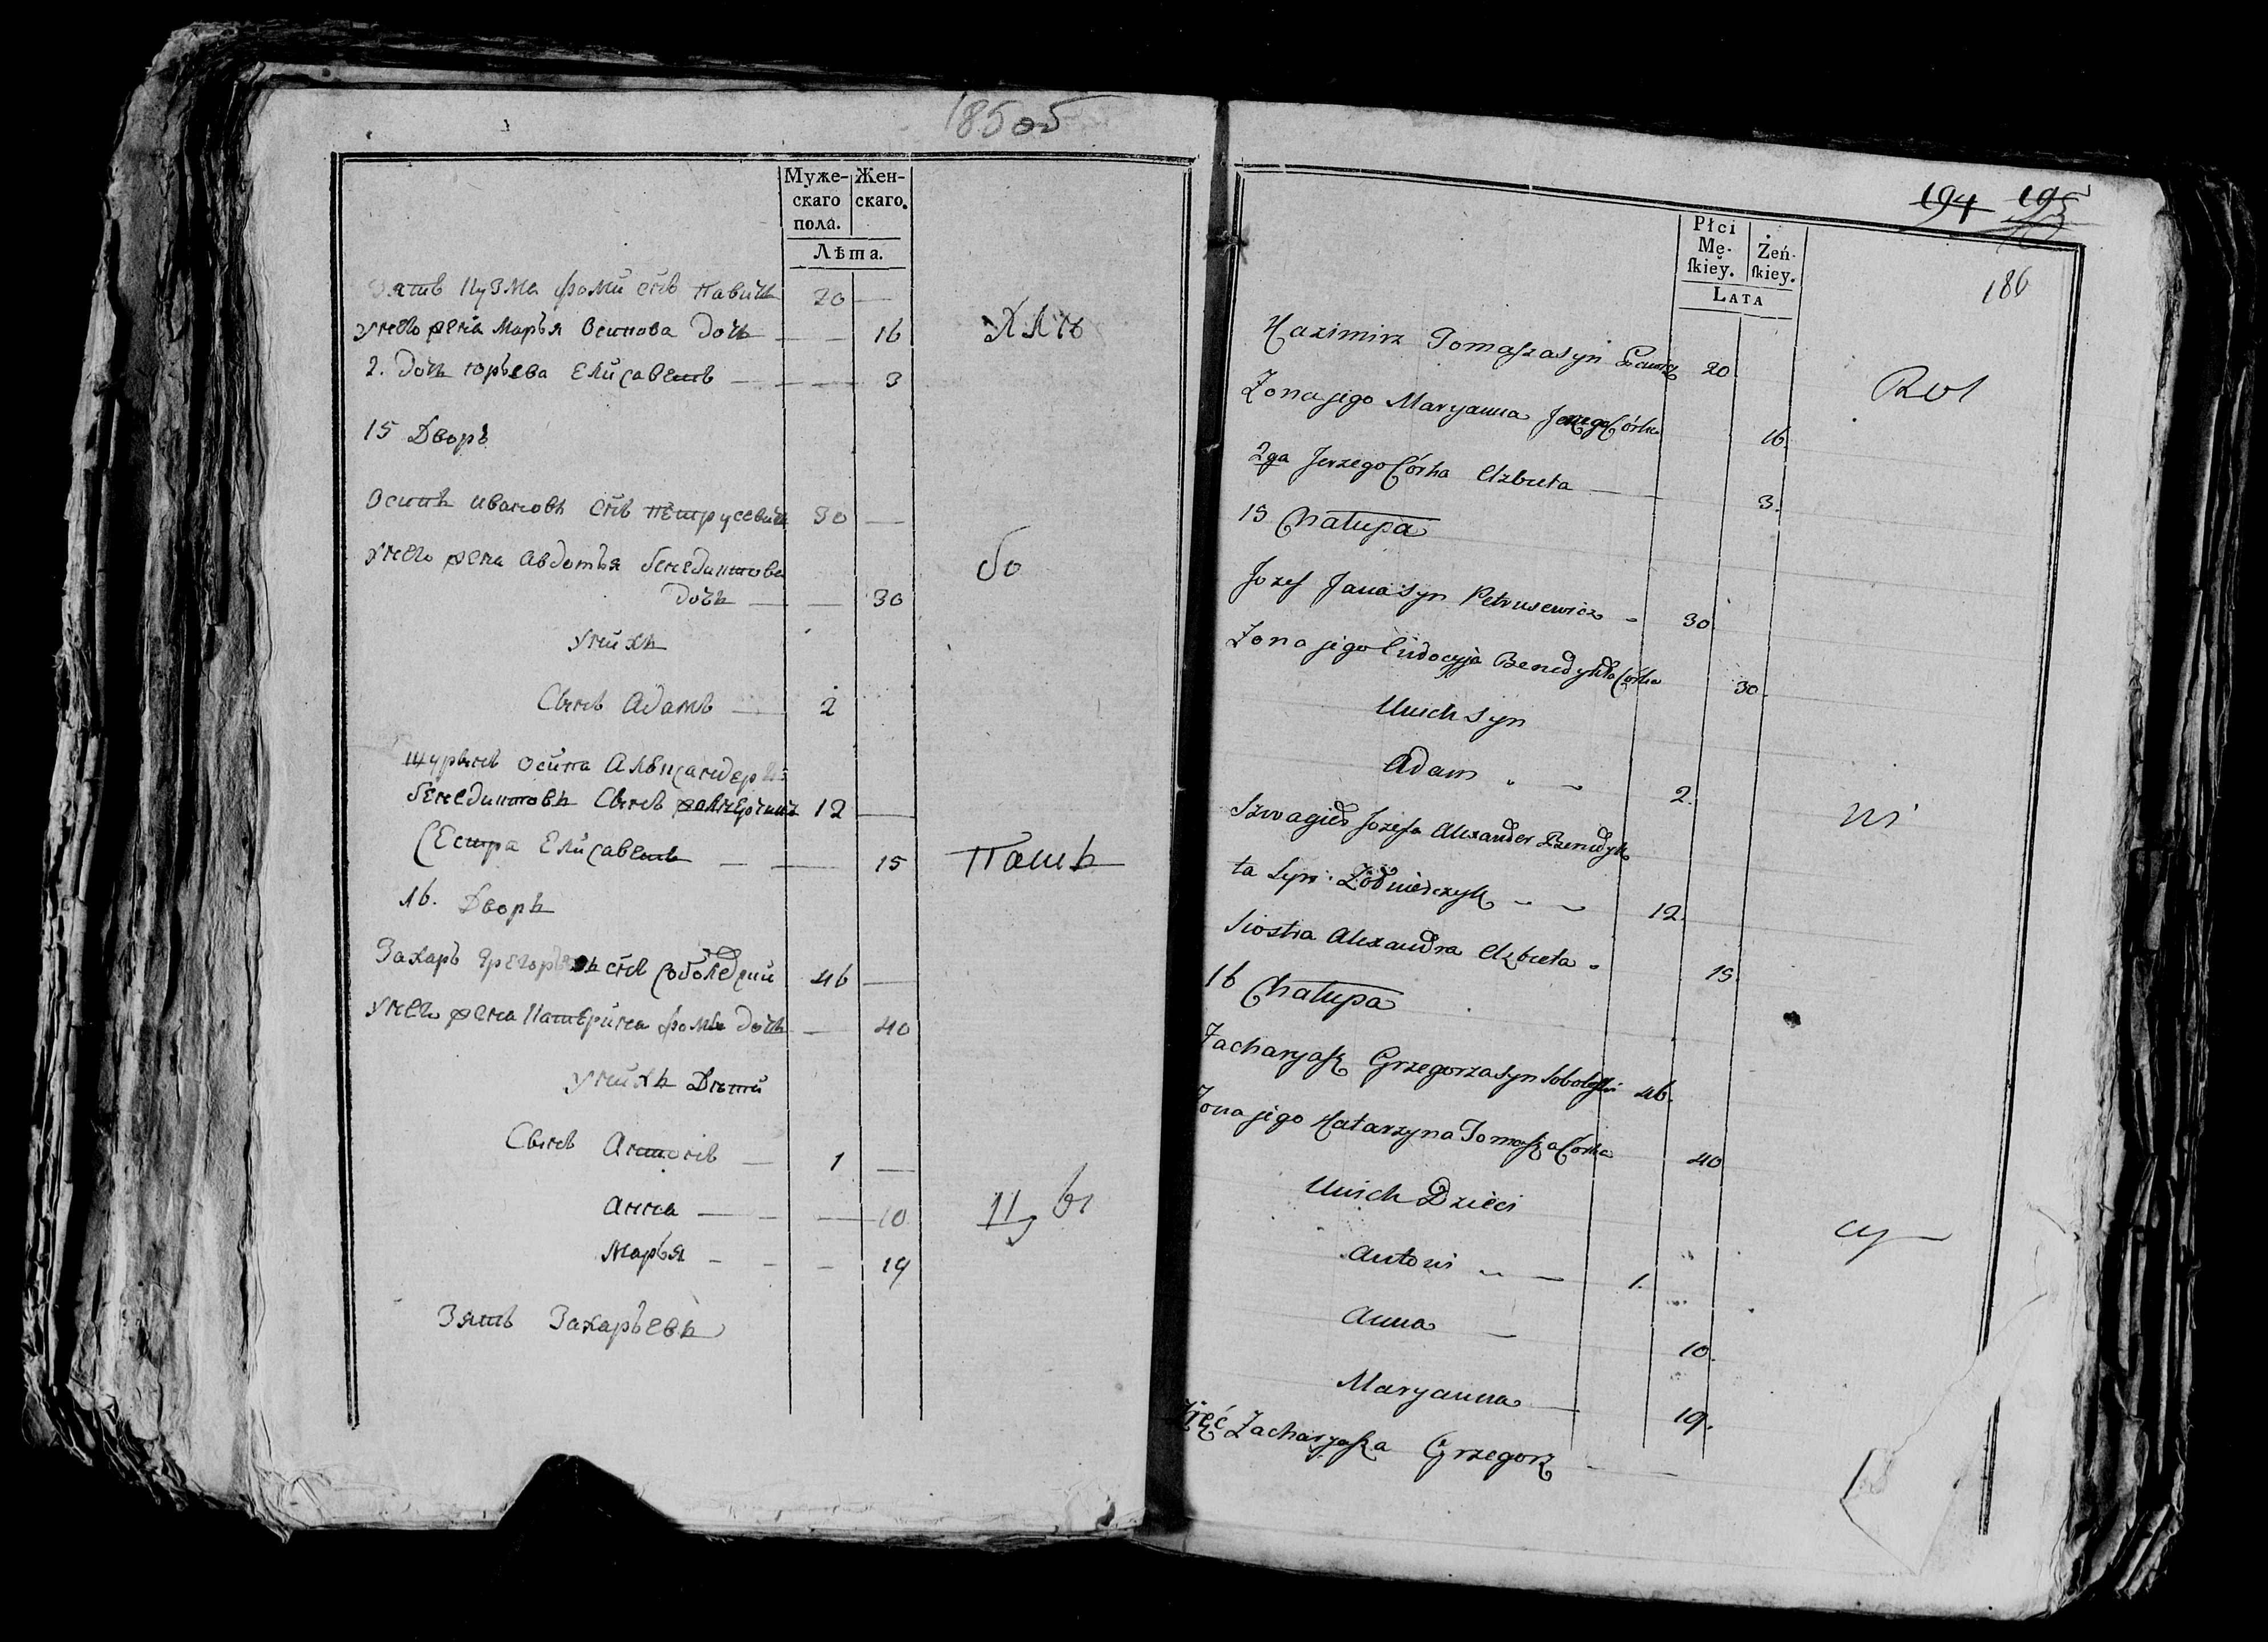 185 об
Муже-
скаго
пола.
Жен-
скаго.
Лѣта.
зять Кузма фоми снъ 20
унего жена Марья Осипова дочь 16
2. дочь юрьева Елисаветъ 3
15 Дворъ
Осипъ ивановъ снъ петрусевичь 30
унего жена Авдотья бенедиктова
дочь 30
бо
унихъ
Сынъ Адамъ 2
шурынъ осипа Александер
бенедиктовъ Сынъ 12
Сестра Елисаветъ 15
16. Дворъ
Захаръ снъ соболевский 46
унего жена Катерина фомы дочь 40
унихъ Дѣти
Сынъ Антонъ 1
Анна 10
Марья 19
Зять Захарьевъ
194 195
186
Płci
Mę-
ſkiey.
Żeń-
ſkiey.
LATA
Kazimirz Tomaſza syn 20
Żona jego Maryanna Córka 16
2ga Jerzego Córka Elzbieta 3.
15 Chałupa
Jozef Jana syn Petrusewicz 30
Żona jego Eudocyja Benedykta Córka 30
Unich syn
Adam 2.
Szwagier Jozefa Alexander Benedyk
ta syn 12.
Siostra Alexandra Elzbieta 15
16 Chałupa
Zacharyaſz Grzegorza syn 46.
Żona jego Katarzyna Tomaſza Córka 40
Unich Dzieci
Antoni 1.
Anna 10.
Maryanna 19.
Zięć Zacharyaſza Grzegorz